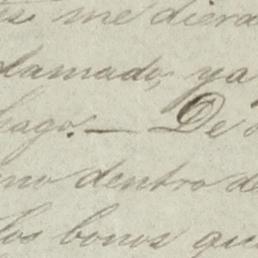 me diera
lamado, ya
hago.— De
no dentro de
los bonos que